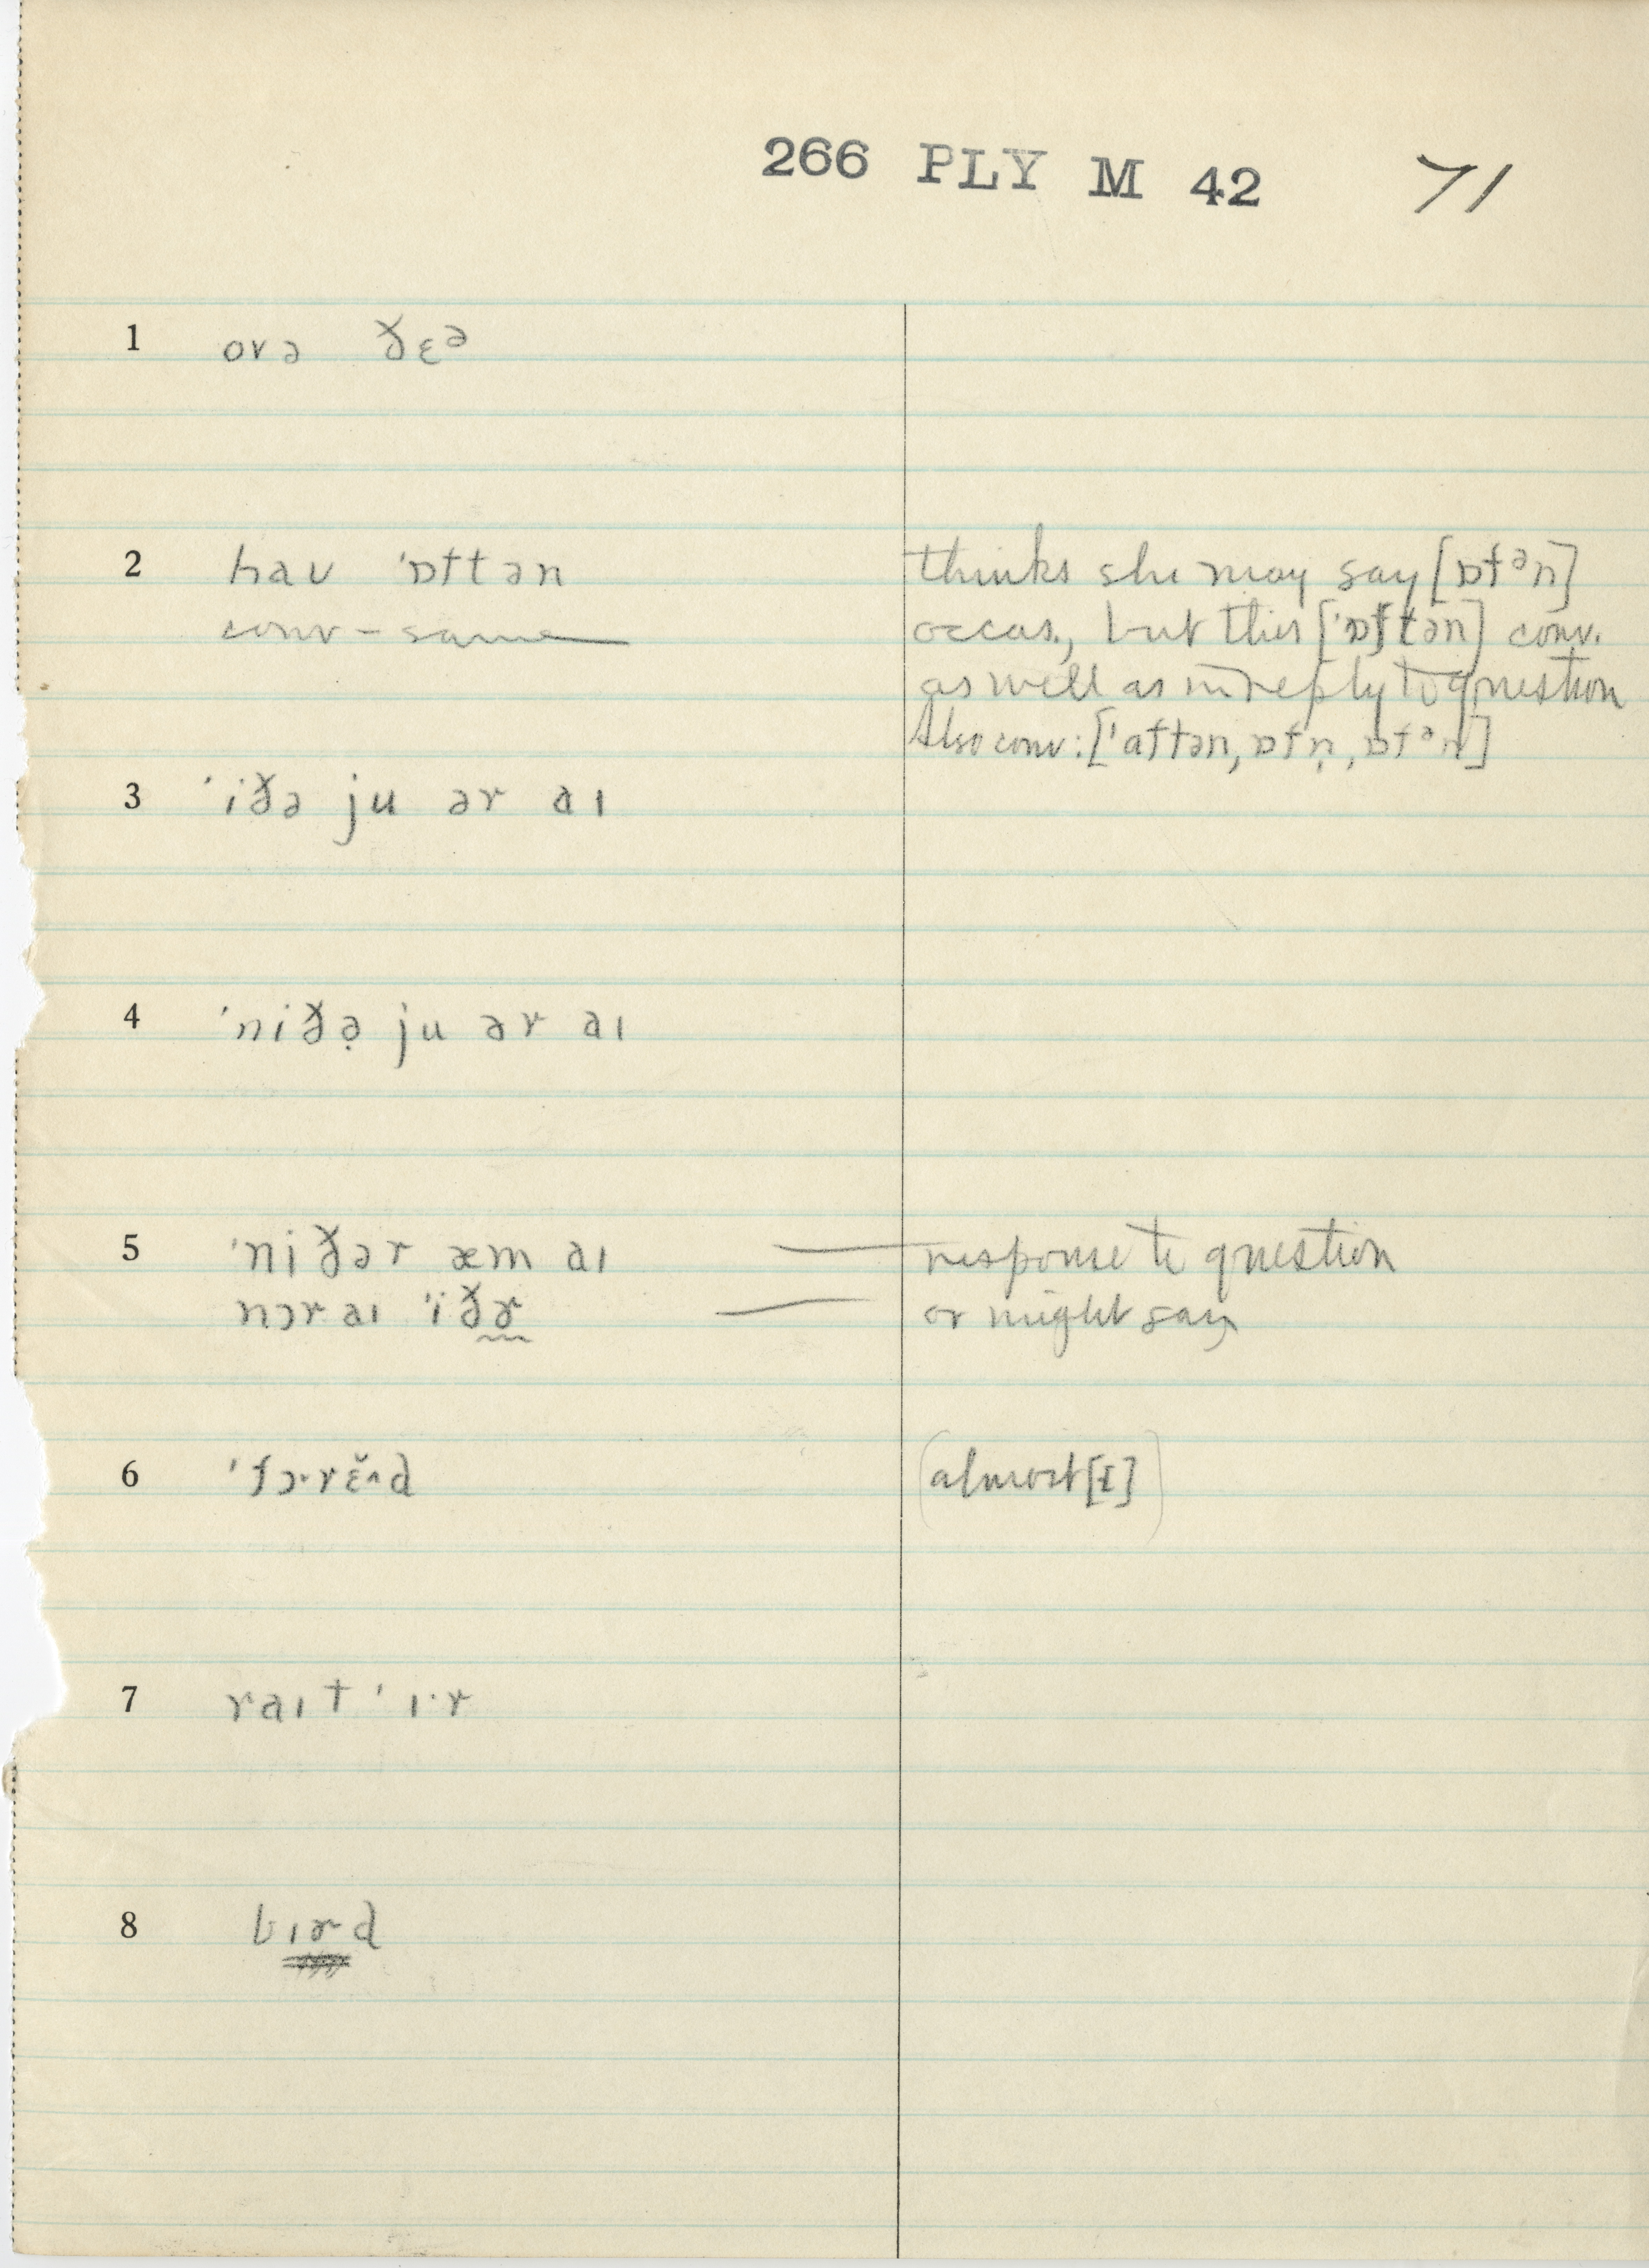 266 PLY M 42 71
1 ovə ðɛᵊ
2 haʊ ˈɒftən thinks she may say [ɒfᵊn]
conv – same occas., but thus [ˈɒftən] conv.
as well as in reply to question
Also conv: [ˈaftən, ɒfn̩, ɒfᵊn]
3 ˈiðə ju ər aɪ
4 ˈniðə̣ ju ər aɪ
5 ˈniðər æm aɪ — response to question
nɔr aɪ ˈiðɚ — or might say
6 ˈfɔ·rɛ̆^d (almost [ɪ])
7 raɪt ˈɪ·r
8 bɪɚd